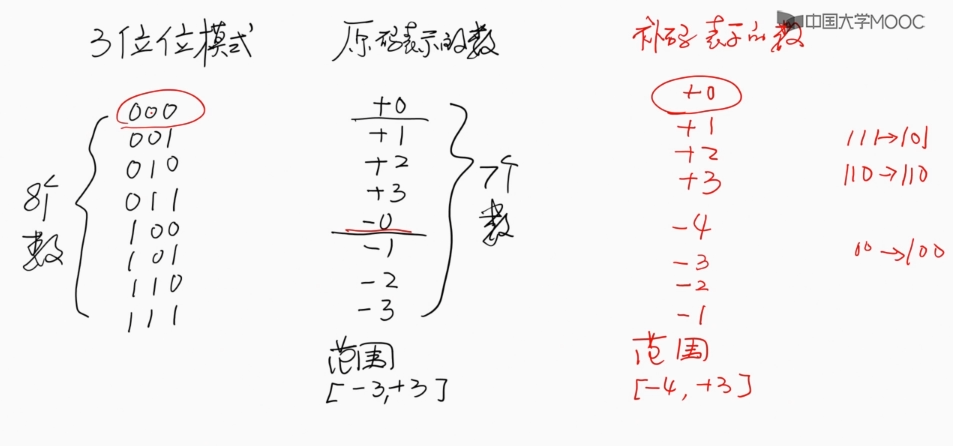 中国大学MOOC
3位位模式 原码表示的数 补码表示的数
000 +0 +0
001 +1 +1
010 +2 +2 111→101
011 +3 +3 110→110
8个数 7个数
100 -0 -4
101 -1 -3 00→100
110 -2 -2
111 -3 -1
范围 范围
[-3,+3] [-4,+3]